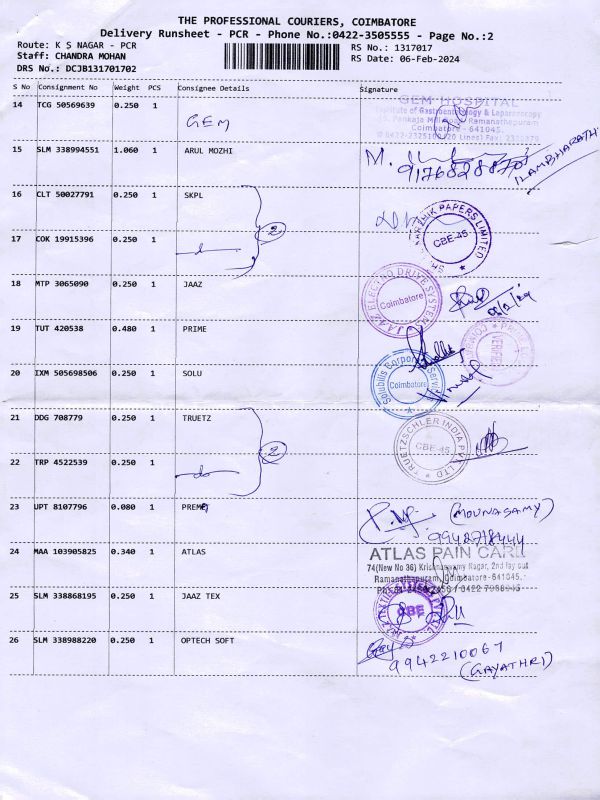 THE PROFESSIONAL COURIERS, COIMBATORE
Delivery Runsheet - PCR - Phone No.:0422-3505555 - Page No.:2
Route: K S NAGAR - PCR
RS No.: 1317017
Staff: CHANDRA MOHAN
RS Date: 06-Feb-2024
DRS No.: DCJB131701702
S No Consignment No Weight PCS Consignee Details Signature
14 TCG 50569639 0.250 1
GEM
GEM HOSPITAL
Institute of Gastroenterology & Laparoscopy
Pankaja Mill Road, Ramanathapuram
Coimbatore - 641045.
15 SLM 338994551 1.060 1 ARUL MOZHI
M.
9176828870
ILAMBHARATHI
16 CLT 50027791 0.250 1 SKPL
2
PAPERS LIMITED
CBE-45
17 COK 19915396 0.250 1
do
18 MTP 3065090 0.250 1 JAAZ
JAAZ ELECTRO DRIVE SYSTEM
Coimbatore
19 TUT 420538 0.480 1 PRIME
20 IXM 505698506 0.250 1 SOLU
Solubilis Corporate Services
Coimbatore
21 DDG 708779 0.250 1 TRUETZ
2
TRUETZSCHLER INDIA PVT. LTD
CBE-45
22 TRP 4522539 0.250 1
do
23 UPT 8107796 0.080 1 PREME
(MOUNASAMY)
9942718444
24 MAA 103905825 0.340 1 ATLAS
ATLAS PAIN CARE
74(New No 36) Krishnaswamy Nagar, 2nd lay out
Ramanathapuram, Coimbatore - 641045.
25 SLM 338868195 0.250 1 JAAZ TEX
CBE
26 SLM 338988220 0.250 1 OPTECH SOFT
9942210067
(GAYATHRI)